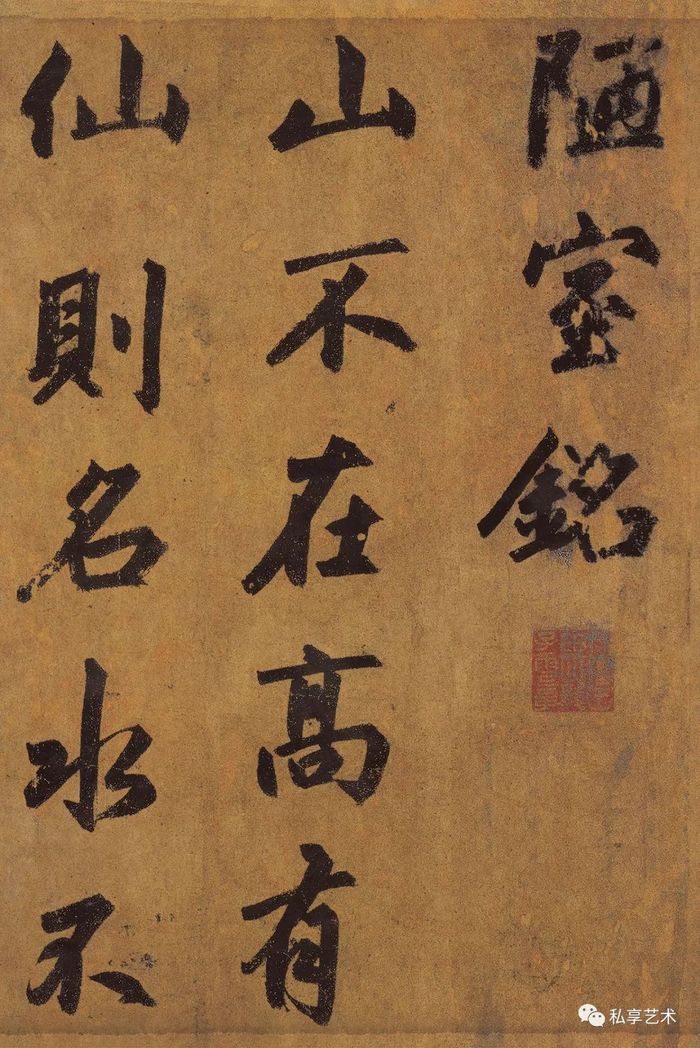 陋室銘
山不在高有
仙則名水不
私享艺术